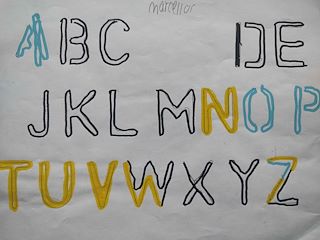 marcellor
ABC DE
JKL MNOP
TUVWXYZ